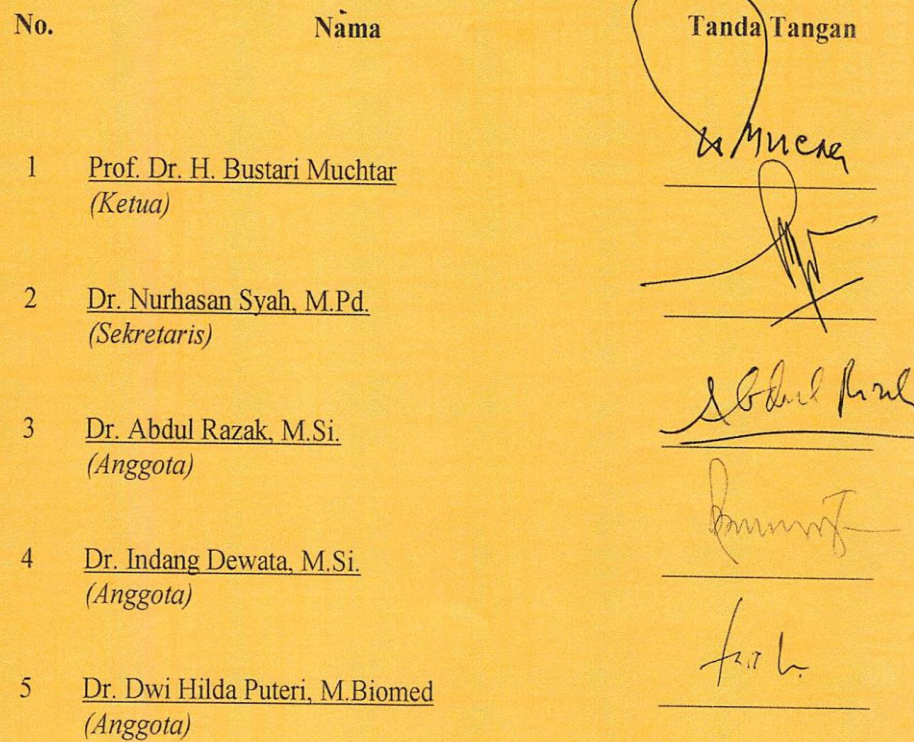 No. Nama Tanda Tangan
1 Prof. Dr. H. Bustari Muchtar
(Ketua)
2 Dr. Nurhasan Syah, M.Pd.
(Sekretaris)
3 Dr. Abdul Razak, M.Si.
(Anggota)
4 Dr. Indang Dewata, M.Si.
(Anggota)
5 Dr. Dwi Hilda Puteri, M.Biomed
(Anggota)